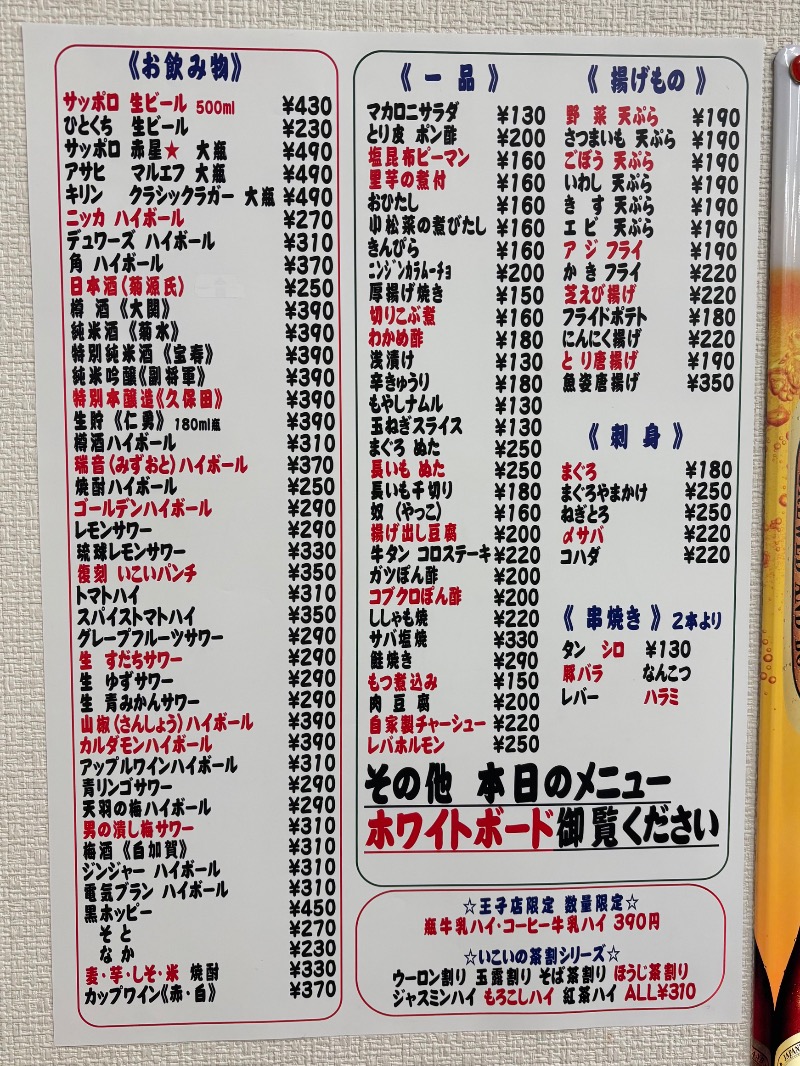 《お飲み物》
サッポロ 生ビール 500ml ¥430
ひとくち 生ビール ¥230
サッポロ 赤星★ 大瓶 ¥490
アサヒ マルエフ 大瓶 ¥490
キリン クラシックラガー 大瓶 ¥490
ニッカ ハイボール ¥270
デュワーズ ハイボール ¥310
角 ハイボール ¥370
日本酒(菊源氏) ¥250
樽 酒《大関》 ¥390
純米酒《菊水》 ¥390
特別純米酒《宝寿》 ¥390
純米吟醸《副将軍》 ¥390
特別本醸造《久保田》 ¥390
生貯《仁勇》180ml瓶 ¥390
樽酒ハイボール ¥310
瑞音(みずおと)ハイボール ¥370
焼酎ハイボール ¥250
ゴールデンハイボール ¥290
レモンサワー ¥290
琉球レモンサワー ¥330
復刻 いこいパンチ ¥350
トマトハイ ¥310
スパイストマトハイ ¥350
グレープフルーツサワー ¥290
生 すだちサワー ¥290
生 ゆずサワー ¥290
生 青みかんサワー ¥290
山椒(さんしょう)ハイボール ¥390
カルダモンハイボール ¥390
アップルワインハイボール ¥310
青リンゴサワー ¥290
天羽の梅ハイボール ¥290
男の潰し梅サワー ¥310
梅酒《白加賀》 ¥310
ジンジャー ハイボール ¥310
電気ブラン ハイボール ¥310
黒ホッピー ¥450
そと ¥270
なか ¥230
麦・芋・しそ・米 焼酎 ¥330
カップワイン《赤・白》 ¥370
《一品》
マカロニサラダ ¥130
とり皮 ポン酢 ¥200
塩昆布ピーマン ¥160
里芋の煮付 ¥160
おひたし ¥160
小松菜の煮びたし ¥160
きんぴら ¥160
ニンジンカラムーチョ ¥200
厚揚げ焼き ¥150
切りこぶ煮 ¥160
わかめ酢 ¥180
浅漬け ¥130
辛きゅうり ¥180
もやしナムル ¥130
玉ねぎスライス ¥130
まぐろ ぬた ¥250
長いも ぬた ¥250
長いも千切り ¥180
奴(やっこ) ¥160
揚げ出し豆腐 ¥200
牛タン コロステーキ ¥220
ガツぽん酢 ¥200
コブクロぽん酢 ¥200
ししゃも焼 ¥220
サバ塩焼 ¥330
鮭焼き ¥290
もつ煮込み ¥150
肉豆腐 ¥200
自家製チャーシュー ¥220
レバホルモン ¥250
《揚げもの》
野菜 天ぷら ¥190
さつまいも 天ぷら ¥190
ごぼう 天ぷら ¥190
いわし 天ぷら ¥190
きす 天ぷら ¥190
エビ 天ぷら ¥190
アジ フライ ¥190
かきフライ ¥220
芝えび揚げ ¥220
フライドポテト ¥180
にんにく揚げ ¥220
とり唐揚げ ¥190
魚姿唐揚げ ¥350
《刺身》
まぐろ ¥180
まぐろやまかけ ¥250
ねぎとろ ¥250
〆サバ ¥220
コハダ ¥220
《串焼き》2本より
タン シロ ¥130
豚バラ なんこつ
レバー ハラミ
その他 本日のメニュー
ホワイトボード御覧ください
☆王子店限定 数量限定☆
瓶牛乳ハイ・コーヒー牛乳ハイ 390円
☆いこいの茶割シリーズ☆
ウーロン割り 玉露割り そば茶割り ほうじ茶割り
ジャスミンハイ もろこしハイ 紅茶ハイ ALL¥310